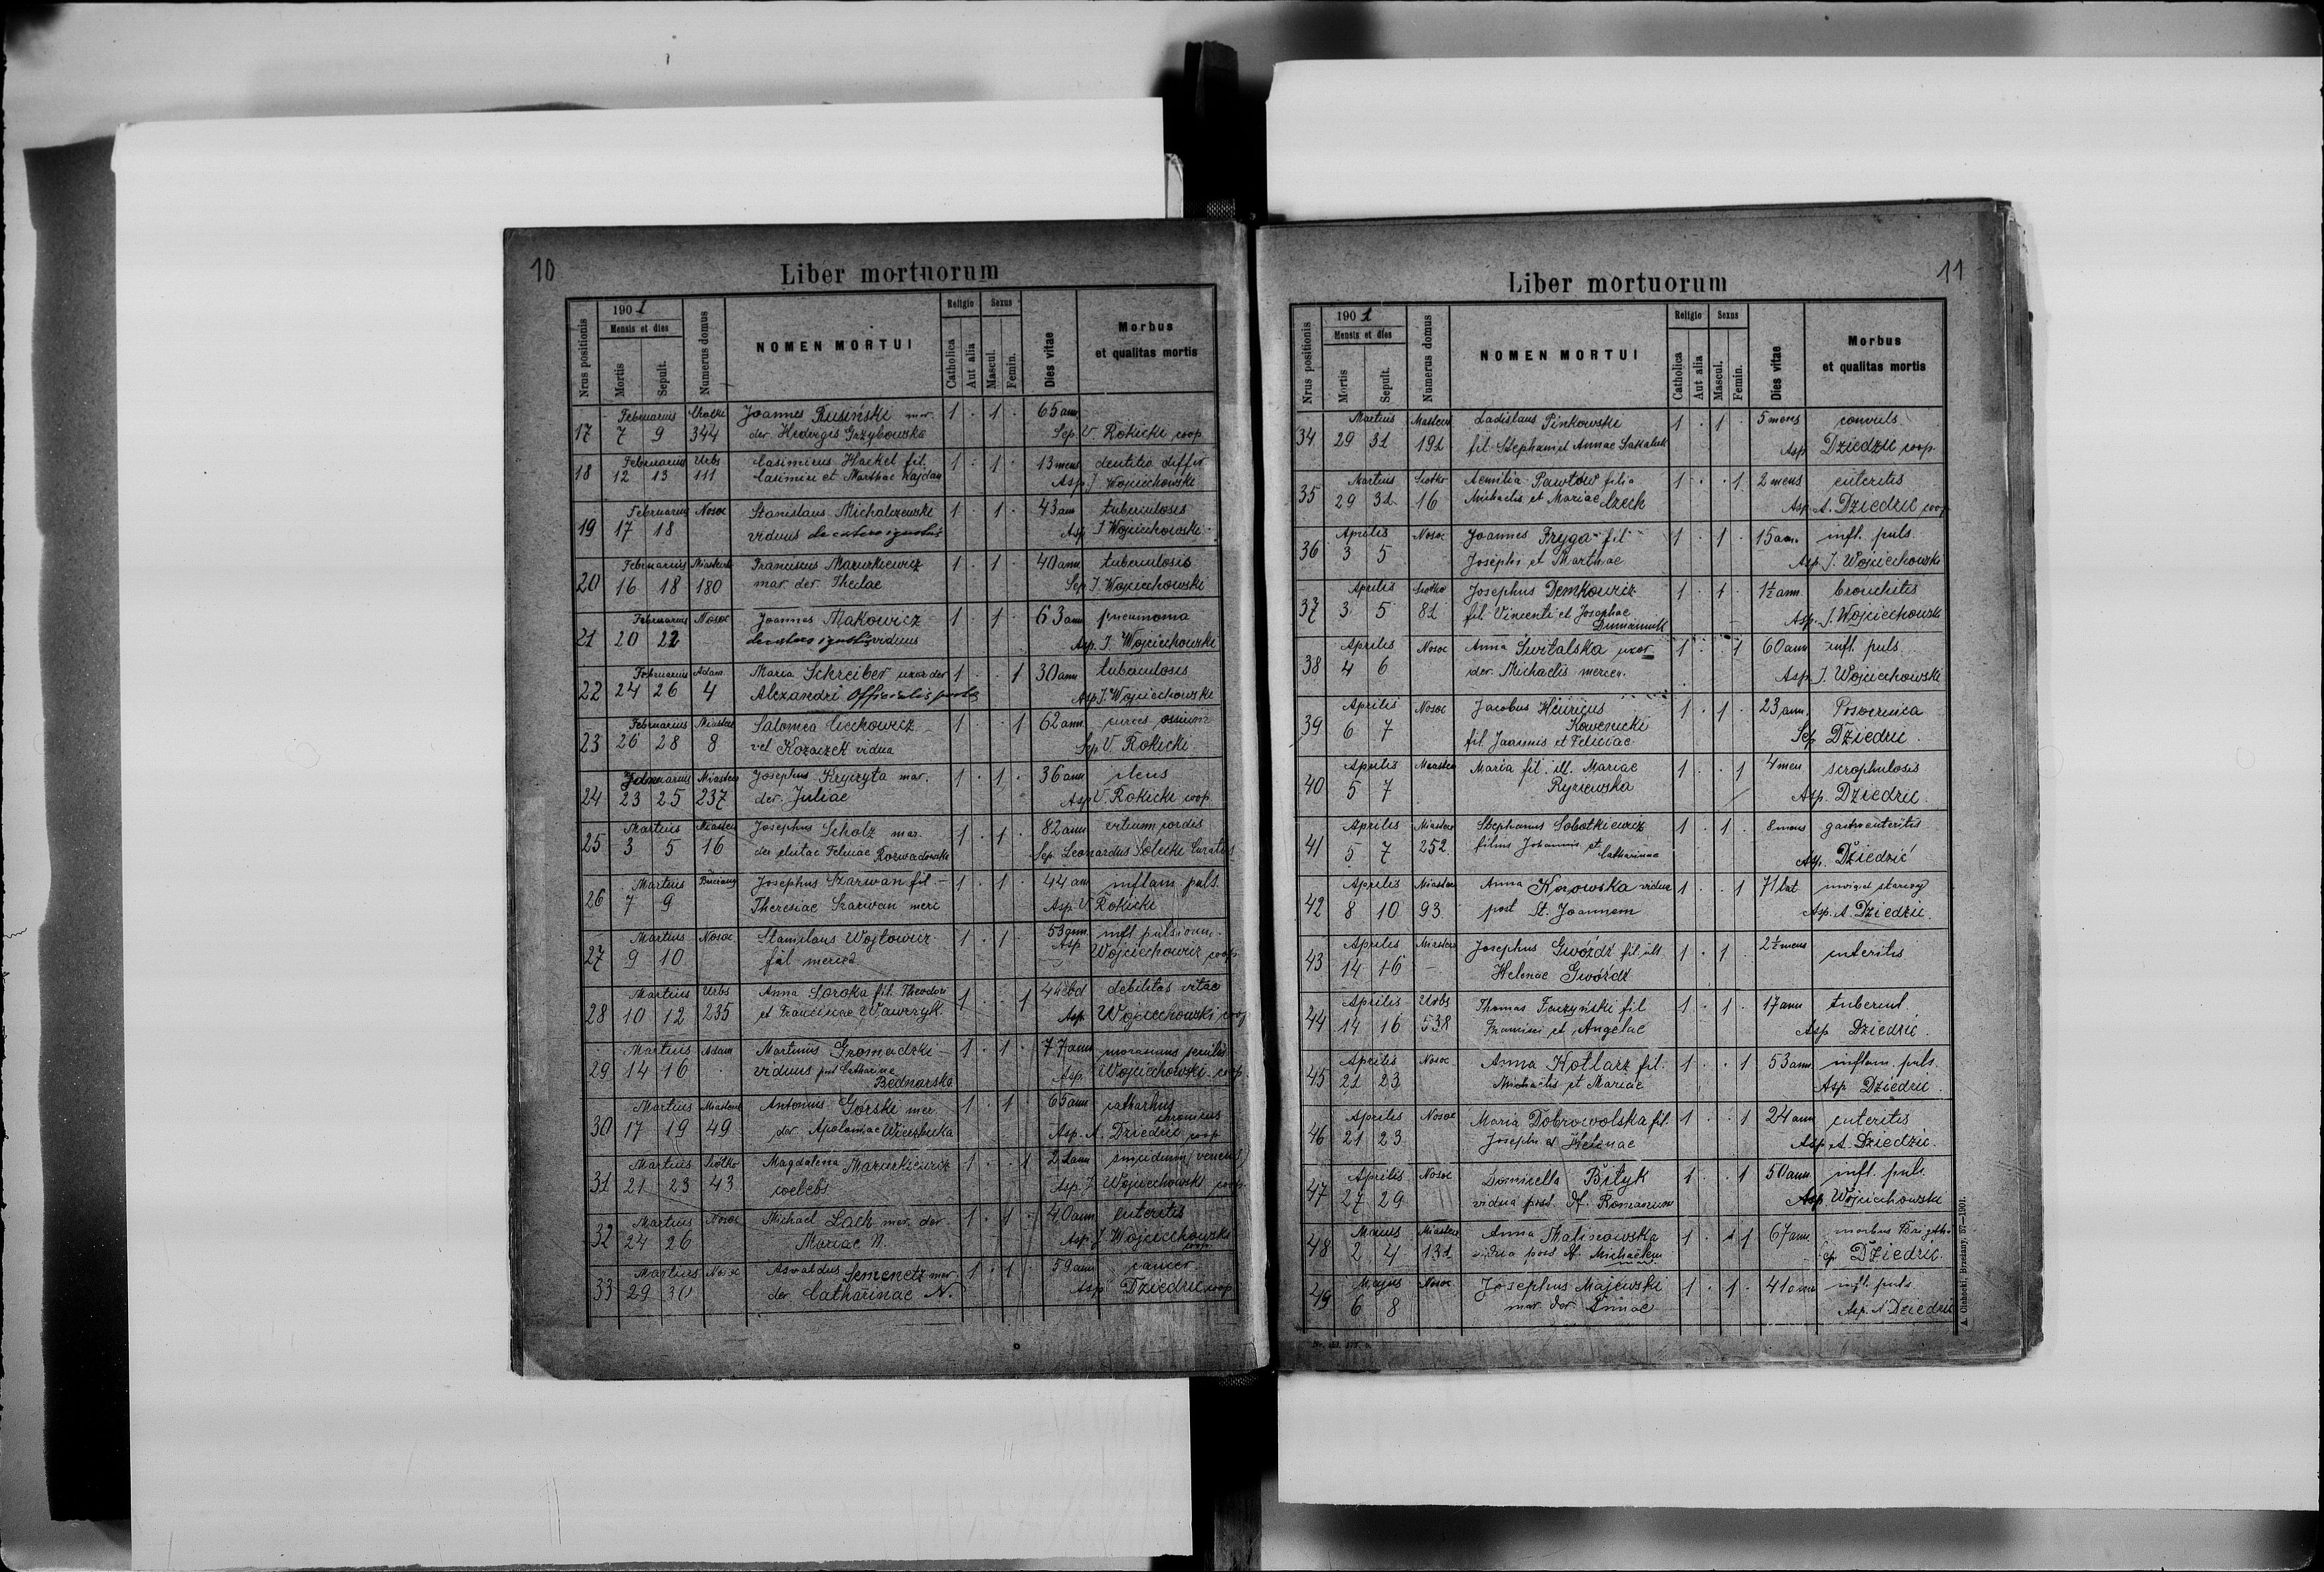 10
Liber mortuorum
Nrus positionis
1901
Mensis et dies
Mortis
Sepult.
Numerus domus
NOMEN MORTUI
Religio
Catholica
Aut alia
Sexus
Mascul.
Femin.
Dies vitae
Morbus
et qualitas mortis
17 Februarius 7 9 344 Joannes Rusiński mar. 1 · 1 · 65 ann
der Hedvigis Grzybowska Sep. V. Rokicki coop
18 Februarius 12 13 Urbs 111 Casimirus Haekel fil. 1 · 1 · 13 mens dentitio diffic
Casimiri et Marthae Kajdan Asp. J Wojciechowski
19 Februarius 17 18 Nosoc Stanislaus Michalczewski 1 · 1 · 43 ann tuberculosis
viduus de cetero ignotus Asp J Wojciechowski
20 Februarius 16 18 180 Franciscus Mazurkiewicz 1 · 1 · 40 ann tuberculosis
mar. der Theclae Sep J Wojciechowski
21 Februarius 20 22 Nosoc Joannes Makowicz 1 · 1 · 63 ann pneumonia
de cetero ignotus viduus Asp. J Wojciechowski
22 Februarius 24 26 Adam 4 Maria Schreiber uxor der 1 · · 1 30 ann tuberculosis
Alexandri Officialis Asp J. Wojciechowski
23 Februarius 26 28 8 Salomea 1 · · 1 62 ann ossium
vel Kozaczek vidua Sep V. Rokicki
24 23 25 237 Josephus Kryczyta mar. 1 · 1 · 36 ann ileus
der. Juliae Asp V. Rokicki coop.
25 Martius 3 5 16 Josephus Scholz mar. 1 · 1 · 82 ann vitium cordis
Rozwadowska Sep Leonardus Solecki Curatus
26 Martius 7 9 Josephus Szarwan fil 1 · 1 · 44 ann inflam puls.
Theresiae Szarwan merc Asp V Rokicki
27 Martius 9 10 Nosoc Stanislaus Wojtowicz 1 · 1 · 53 ann infl
fil merced Asp Wojciechowicz coop
28 Martius 10 12 Urbs 235 Anna Soroka fil. Theodori 1 · · 1 4 hebd debilitas vitae
et Franciscae Wawrzyk Asp Wojciechowski coop
29 Martius 14 16 Adam Martinus Gromadzki 1 · 1 · 77 ann marasmus senilis
viduus post Catharinae Bednarska Asp Wojciechowski coop.
30 Martius 17 19 49 Antonius Górski mar. 1 · 1 · 65 ann catharhus chronicus
der Apoloniae Wierzbicka Asp. A. Dziedzic coop
31 Martius 21 23 Siołko 43 Magdalena Mazurkiewicz 1 · · 1 21 ann
coelebs Asp. J Wojciechowski coop
32 Martius 24 26 Nosoc Michael Lach mar. der 1 · 1 · 40 ann enteritis
Mariae N. Asp. J Wojciechowski coop
33 Martius 29 30 Nosoc Semenetz mar 1 · 1 · 59 ann cancer
der Catharinae N. Asp Dziedzic coop
11
Liber mortuorum
Nrus positionis
1901
Mensis et dies
Mortis
Sepult.
Numerus domus
NOMEN MORTUI
Religio
Catholica
Aut alia
Sexus
Mascul.
Femin.
Dies vitae
Morbus
et qualitas mortis
34 Martius 29 31 191 Ladislaus Pinkowski 1 · 1 · 5 mens convuls
fil. Stephani et Annae Asp Dziedzic coop.
35 Martius 29 31 Siołko 16 Aemilia Pawłów filia 1 · · 1 2 mens enteritis
Michaelis et Mariae Asp. A. Dziedzic coop
36 Aprilis 3 5 Nosoc Joannes Fryga fil 1 · 1 · 15 ann. infl. puls.
Josephi et Marthae Asp. J. Wojciechowski
37 Aprilis 3 5 Siołko 81 Josephus Demkowicz 1 · 1 · 1½ ann bronchitis
fil. Vincenti et Josephae Asp. J. Wojciechowski
38 Aprilis 4 6 Nosoc Anna Świtalska uxor 1 · · 1 60 ann infl. puls
der. Michaelis mercen. Asp. J Wojciechowski
39 Aprilis 6 7 Nosoc Jacobus Henricus 1 · 1 · 23 ann.
fil. Joannis et Feliciae Sep Dziedzic
40 Aprilis 5 7 Maria fil. ill. Mariae 1 · · 1 4 men scrophulosis
Asp. Dziedzic
41 Aprilis 5 7 252 Stephanus Sobotkiewicz 1 · 1 · 8 mens gastroenteritis
filius Johannis et Catharinae Asp. Dziedzic
42 Aprilis 8 10 93 Anna Kozowska vidua 1 · · 1 71 lat starczy
post St. Joannem Asp. A. Dziedzic.
43 Aprilis 14 16 – Josephus Gwóźdź fil. ill 1 · 1 2½ mens enteritis
Helenae Gwóźdź
44 Aprilis 14 16 Urbs 538 Thomas fil 1 · 1 · 17 ann tubercul
Francisci et Angelae Asp Dziedzic.
45 Aprilis 21 23 Nosoc Anna Kotlarz fil. 1 · · 1 53 ann inflam. puls.
Michaelis et Mariae Asp Dziedzic
46 Aprilis 21 23 Nosoc Maria Dobrowolska fil. 1 · · 1 24 ann enteritis
Josephi et Helenae Asp. A. Dziedzic.
47 Aprilis 27 29 Nosoc Domicella Bityk 1 · · 1 50 ann infl. puls
vidua post Romanum Asp Wojciechowski
48 Maius 2 4 131 Anna Malinowska 1 · 1 1 67 ann morbus Brigthi
vidua post Michaelem Dziedzic
49 Majus 6 8 Nosoc Josephus Majewski 1 · 1 · 41 ann infl. puls
mar. der Annae Asp. A Dziedzic
A. Glabocki, Brzeżany. 57—1901.